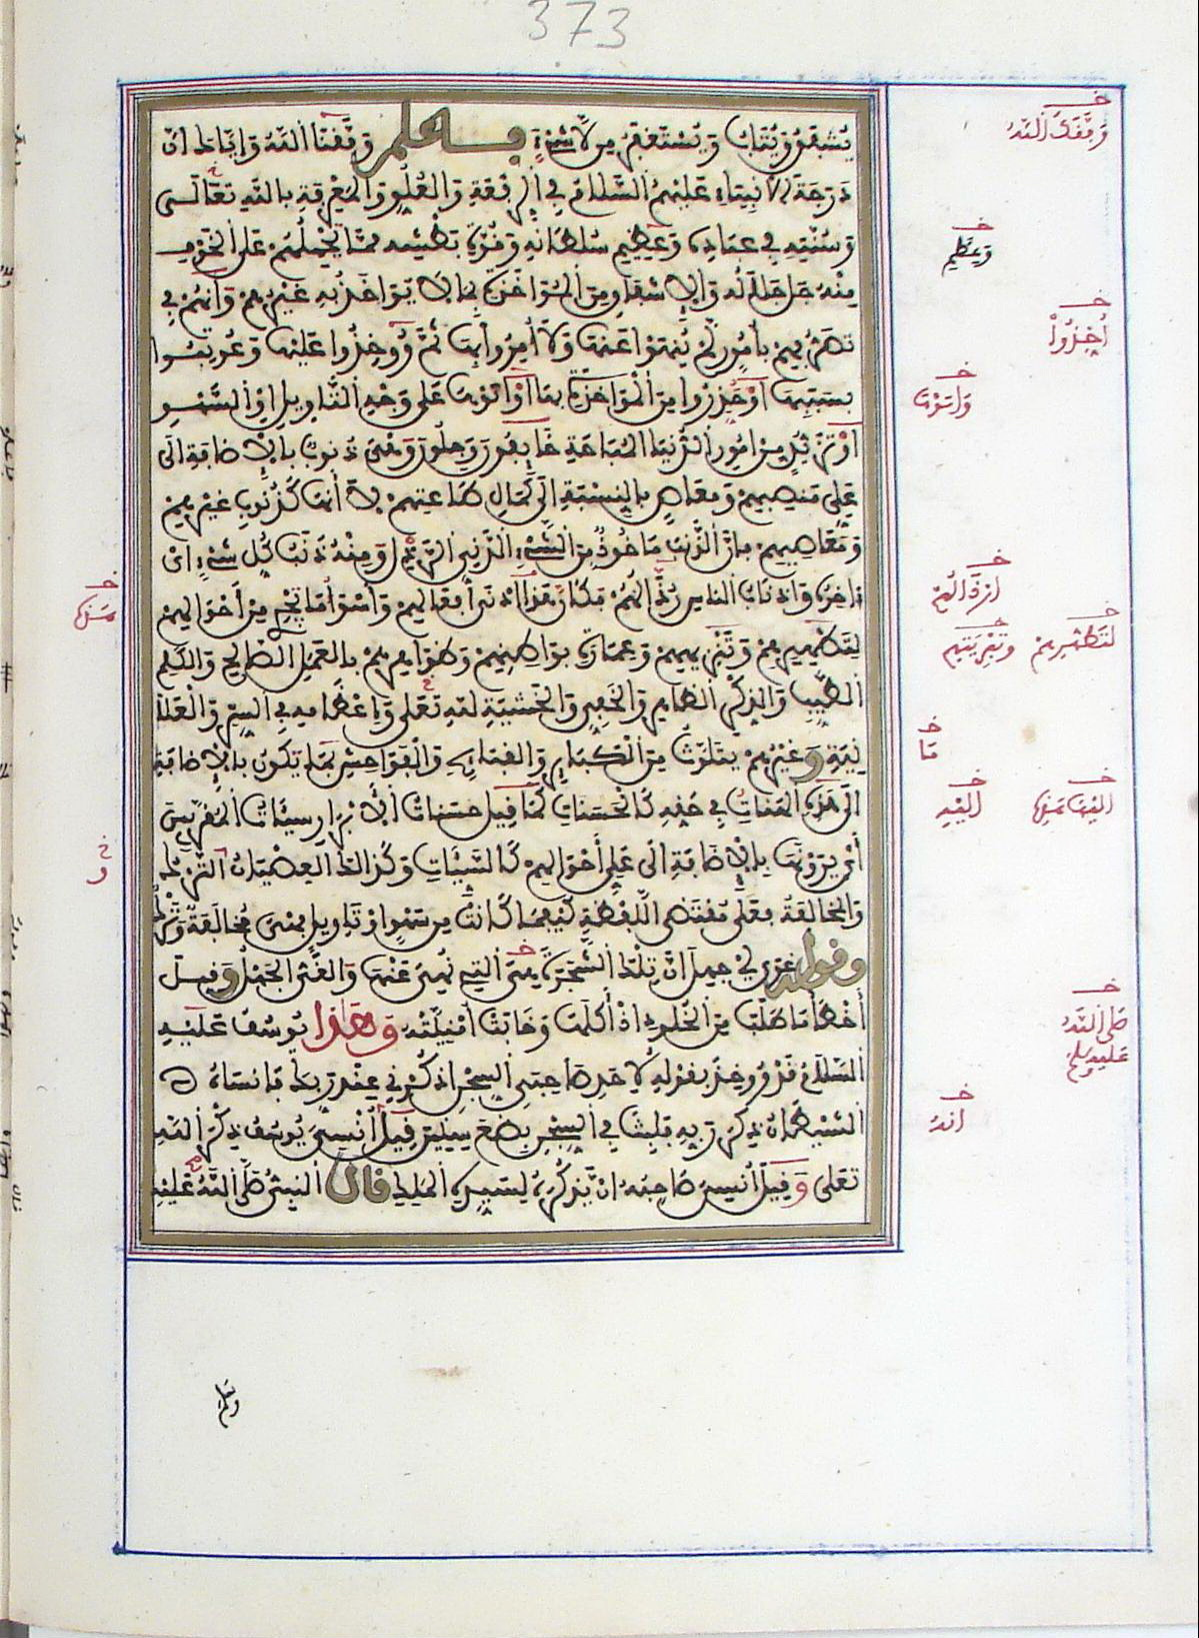 373
يُشْفِقُ وَيُتَابُ وَيُسْتَغْفَرُ مِن لَا شَيْءٍ فَاعْلَمْ وَفَّقَنَا اللهُ وَإِيَّاكَ أَنَّ
دَرَجَةَ الأَنْبِيَاءِ عَلَيْهِمُ السَّلَامُ فِي الرِّفْعَةِ وَالْعُلُوِّ وَالْمَعْرِفَةِ بِاللهِ تَعَالَى
وَسُنَّتِهِ فِي عِبَادِهِ وَعَظِيمِ سُلْطَانِهِ وَقُوَّةِ بَطْشِهِ مِمَّا يَحْمِلُهُمْ عَلَى الْخَوْفِ
مِنْهُ جَلَّ جَلَالُهُ وَالإِشْفَاقِ مِنَ الْمُؤَاخَذَةِ بِمَا لَا يُؤَاخَذُ بِهِ غَيْرُهُمْ وَأَنَّهُمْ فِي
تَصَرُّفِهِمْ بِأُمُورٍ لَمْ يُنْهَوْا عَنْهَا وَلَا أُمِرُوا بِهَا ثُمَّ وُوخِذُوا عَلَيْهَا وَعُوتِبُوا
بِسَبَبِهَا أَوْ حُذِّرُوا مِنَ الْمُؤَاخَذَةِ بِهَا أَوْ أَتَوْهَا عَلَى وَجْهِ التَّأْوِيلِ أَوِ السَّهْوِ
أَوْ تَزَيُّدٍ مِنْ أُمُورِ الدُّنْيَا الْمُبَاحَةِ خَائِفُونَ وَجِلُونَ وَهِيَ ذُنُوبٌ بِالإِضَافَةِ إِلَى
عَلِيِّ مَنْصِبِهِمْ وَمَعَاصٍ بِالنِّسْبَةِ إِلَى كَمَالِ طَاعَتِهِمْ لَا أَنَّهَا كَذُنُوبِ غَيْرِهِمْ
وَمَعَاصِيهِمْ فَإِنَّ الذَّنْبَ مَأْخُوذٌ مِنَ الشَّيْءِ الدَّنِيِّ الرَّذْلِ وَمِنْهُ ذَنَبُ كُلِّ شَيْءٍ أَيْ
ءَاخِرُهُ وَأَذْنَابُ النَّاسِ رُذَّالُهُمْ فَكَأَنَّ هَذَا أَدْنَى أَفْعَالِهِمْ وَأَسْوَأُ مَا يَجْرِي مِنْ أَحْوَالِهِمْ
لِتَطْهِيرِهِمْ وَتَنْزِيهِهِمْ وَعِمَارَةِ بَوَاطِنِهِمْ وَظَوَاهِرِهِمْ بِالْعَمَلِ الصَّالِحِ وَالْكَلِمِ
الطَّيِّبِ وَالذِّكْرِ الظَّاهِرِ وَالْخَفِيِّ وَالْخَشْيَةِ لِلهِ تَعَلَى وَإِعْظَامِهِ فِي السِّرِّ وَالْعَلَا
نِيَةِ وَغَيْرُهُمْ يَتَلَوَّثُ مِنَ الْكَبَائِرِ وَالْقَبَائِحِ وَالْفَوَاحِشِ بِمَا تَكُونُ بِالإِضَافَةِ
إِلَى هَذِهِ الْهَنَاتُ فِي حَقِّهِ كَالْحَسَنَاتِ كَمَا قِيلَ حَسَنَاتُ الأَبْرَارِ سَيِّئَاتُ الْمُقَرَّبِينَ
أَيْ يَرَوْنَهَا بِالإِضَافَةِ إِلَى عَلِيِّ أَحْوَالِهِمْ كَالسَّيِّئَاتِ وَكَذَالِكَ الْعِصْيَانُ التَّرْكُ
وَالْمُخَالَفَةُ فَعَلَى مُقْتَضَى اللَّفْظَةِ كَيْفَمَا كَانَتْ مِن سَهْوٍ أَوْ تَأْوِيلٍ فَهْيَ مُخَالَفَةٌ وَتَرْكٌ
وَقَوْلُهُ غَوَى أَيْ جَهِلَ أَنَّ تِلْكَ الشَّجَرَةَ هِيَ الَّتِي نُهِيَ عَنْهَا وَالْغَيُّ الْجَهْلُ وَقِيلَ
أَخْطَأَ مَا طَلَبَ مِنَ الْخُلُودِ إِذْ أَكَلَهَا وَخَابَتْ أُمْنِيَّتُهُ وَهَذَا يُوسُفُ عَلَيْهِ
السَّلَامُ قَدْ وُوخِذَ بِقَوْلِهِ لِأَحَدِ صَاحِبَيِ السِّجْنِ اذْكُرْنِي عِندَ رَبِّكَ فَأَنسَاهُ
الشَّيْطَانُ ذِكْرَ رَبِّهِ فَلَبِثَ فِي السِّجْنِ بِضْعَ سِنِينَ قِيلَ أُنْسِيَ يُوسُفُ ذِكْرَ اللهِ
تَعَلَى وَقِيلَ أُنْسِيَ صَاحِبُهُ أَنْ يَذْكُرَهُ لِسَيِّدِهِ الْمَلِكِ قَالَ النَّبِيُّ صَلَّى اللهُ عَلَيْهِ
وَفَّقَكَ اللهُ
وَعَظِيمِ
أُخِذُوا
وَأَتَوْهَا
لِتَطْهِيرِهِمْ
مَا
إِلَيْهِ
صَلَّى اللهُ عَلَيْهِ وَسَلَّمَ
أَنَّهُ